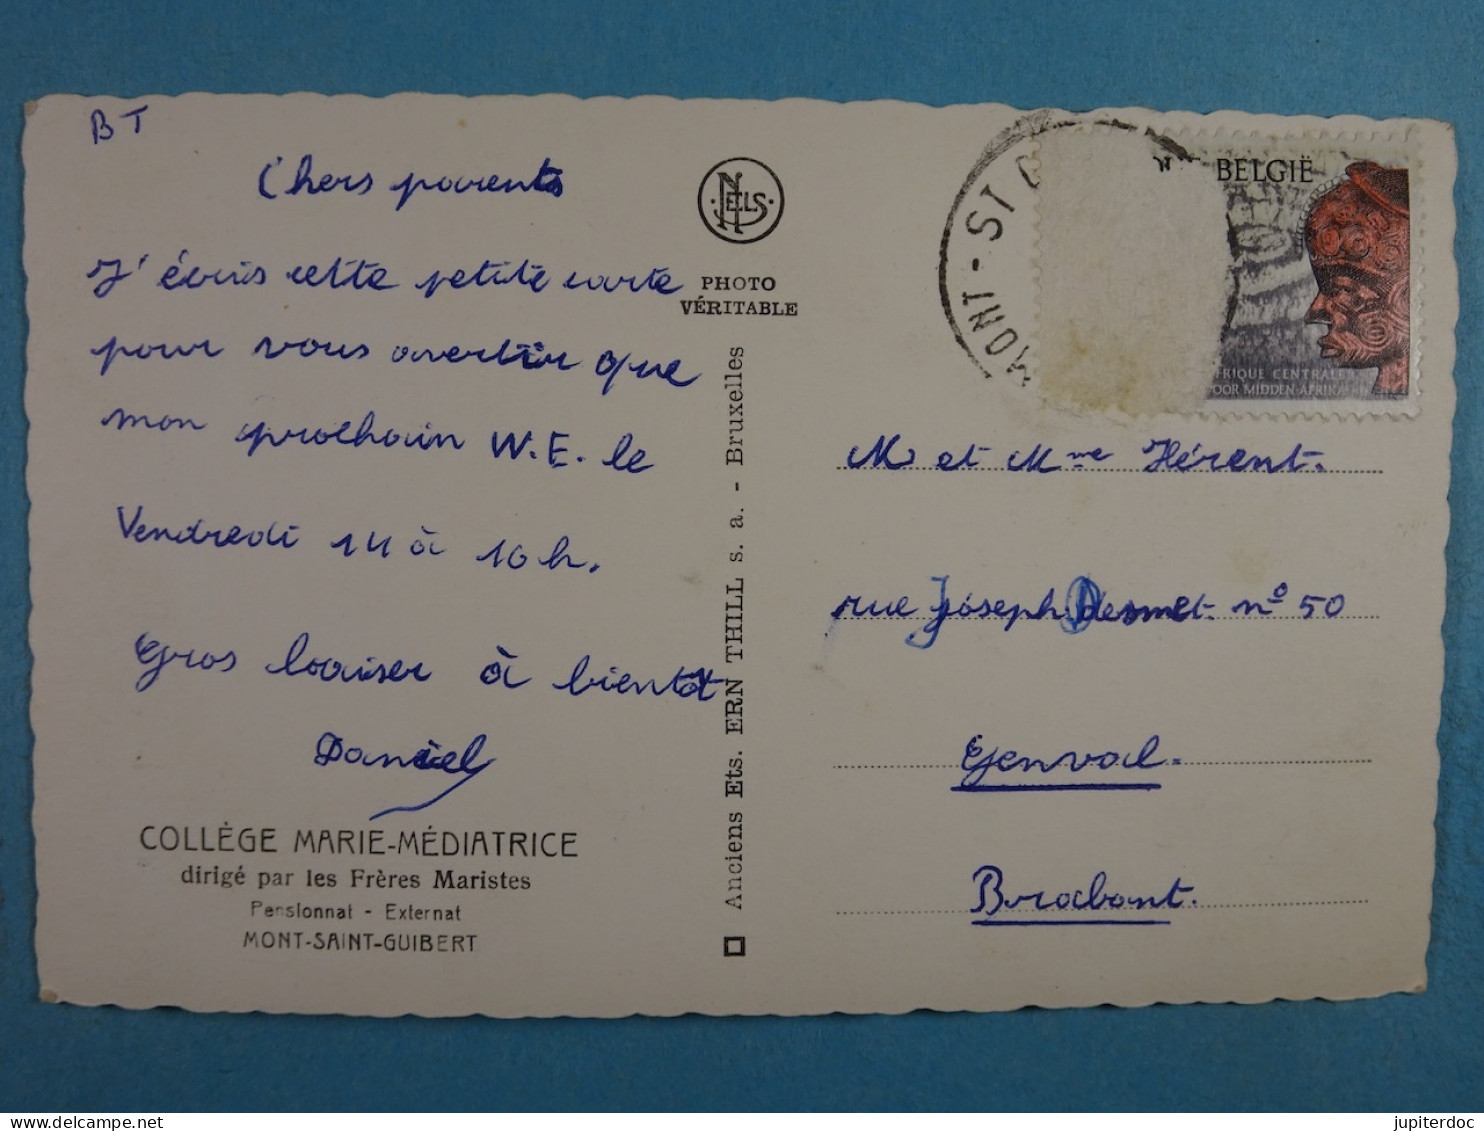 BT
Chers parents
J'écris cette petite carte
pour vous avertir que
mon prochain W.E. le
Vendredi 14 à 16h.
Gros baiser à bientôt
Daniel
COLLÈGE MARIE-MÉDIATRICE
dirigé par les Frères Maristes
Pensionnat - Externat
MONT-SAINT-GUIBERT
NELS
PHOTO
VÉRITABLE
Anciens Ets. ERN THILL s. a. - Bruxelles
MONT-ST
BELGIË
FRIQUE CENTRALE
OOR MIDDEN-AFRIKA
M et Mme Hérent.
rue Joseph Desmet n° 50
Genval.
Brabant.
jupiterdoc